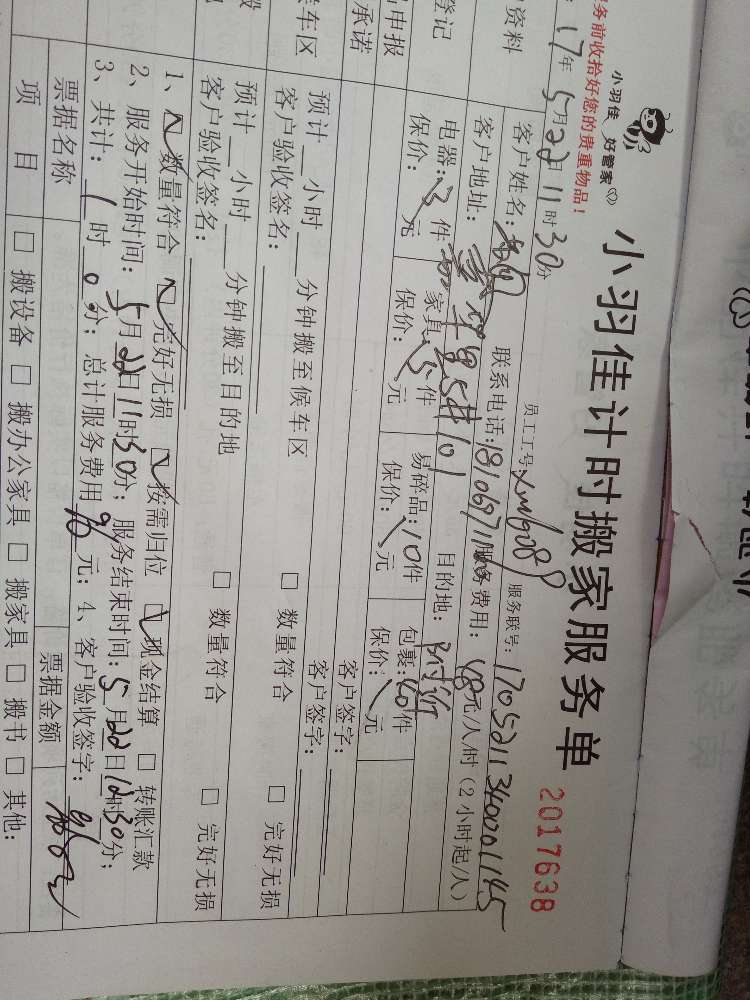 小羽佳 好管家
小羽佳计时搬家服务单
2017638
务前收拾好您的贵重物品！
17年5月22日11时30分
员工工号:xm1908
服务联号:170521134001145
资料
客户姓名:
联系电话:
服务费用: 48元/人/时（2小时起/人）
登记
客户地址:
目的地:
电器:3件
家具:5件
易碎品:10件
包裹:40件
保价: 元
保价: 元
保价: 元
保价: 元
申报
承诺
客户签字:
客户签字:
候车区
预计__小时__分钟搬至候车区
□ 数量符合
□ 完好无损
客户验收签名:
预计__小时__分钟搬至目的地
□ 数量符合
□ 完好无损
客户验收签名:
1、☑数量符合 ☑完好无损 ☑按需归位 ☑现金结算 □ 转账汇款
2、服务开始时间:5月22日11时30分; 服务结束时间:5月22日12时30分;
3、共计:1时0分; 总计服务费用96元; 4、客户验收签字:
票据名称
票据金额
项 目
□ 搬设备 □ 搬办公家具 □ 搬家具 □ 搬书 □ 其他: